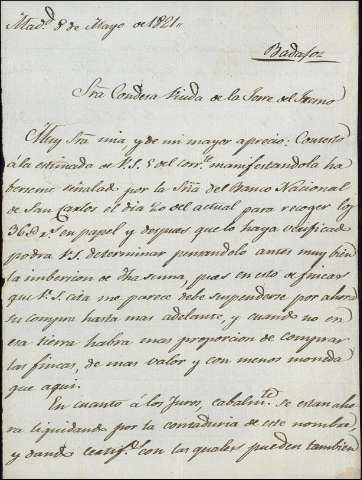 Mad.d 8 de Mayo de 1821,,
Badajoz
Sra Condesa Viuda de la Torre del Fresno
Muy Sra mia, y de mi mayor aprecio: Contesto
á la estimada de V.S. 5 del corr.te manifestandola ha
berseme señalado por la Sria del Banco Nacional
de San Carlos el dia 20 del actual para recoger los
en papel y despues que lo haya verificado
podra V.S. determinar pensandolo antes muy bien
la imbersion de dha suma, pues en esto de fincas
que V.S. cita me parece debe suspenderse por ahora
su compra hasta mas adelante, y cuando no en
esa tierra habra mas proporcion de comprar
las fincas, de mas valor y con menos moneda
que aqui.
En cuanto á los Juros, cabalm.te se estan aho
ra liquidando por la contaduria de este nombre,
y dando certif.s con las quales pueden tambien